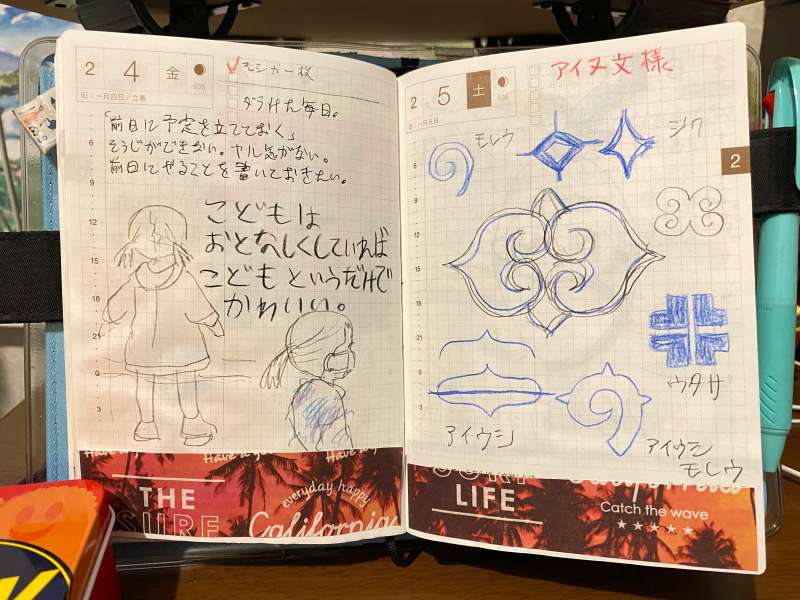 2 4 金
035
旧:一月四日／立春
6
9
12
15
18
21
0
3
モシカー様
ダラけた毎日。
「前日に予定を立てておく」
そうじができない。ヤル気がない。
前日にやることを書いておきたい。
こどもは
おとなしくしていれば
こどもというだけで
かわいい。
Have a g
Have a
THE
SURF
everyday happy
California
2 5 土
036
旧:一月五日
アイヌ文様
6
9
12
15
18
21
0
3
2
モレウ
シク
ウタサ
アイウシ
アイウシ
モレウ
SURF
LIFE
California
Catch the wave